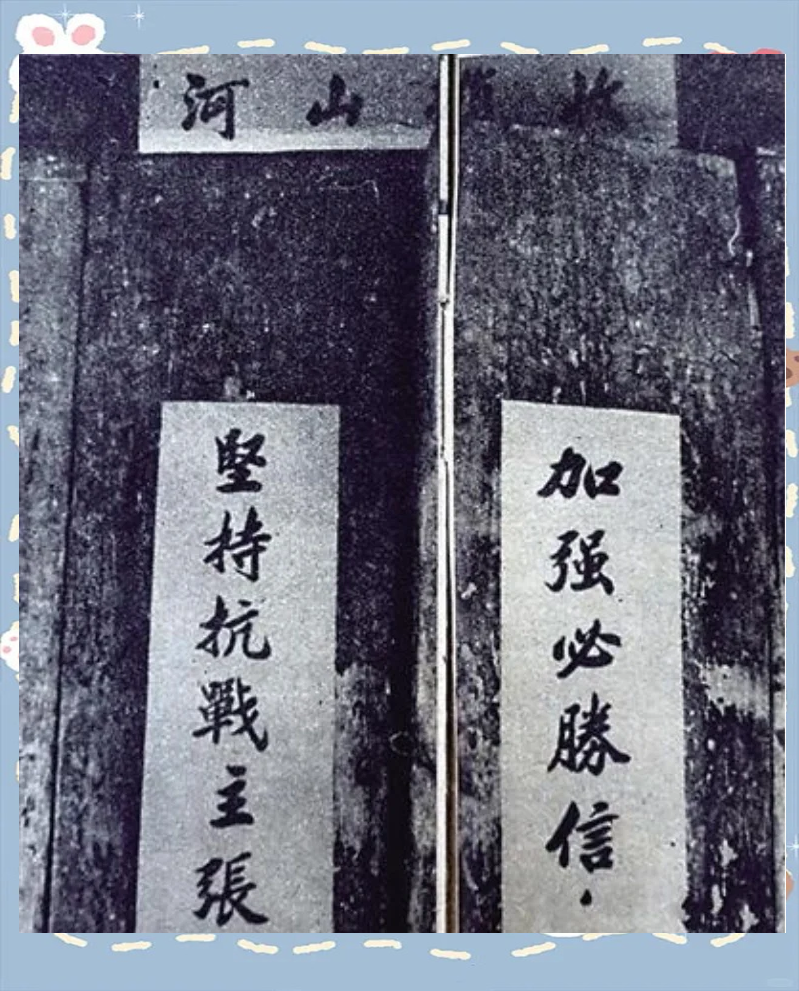 收山河
加强必勝信
堅持抗戰主張